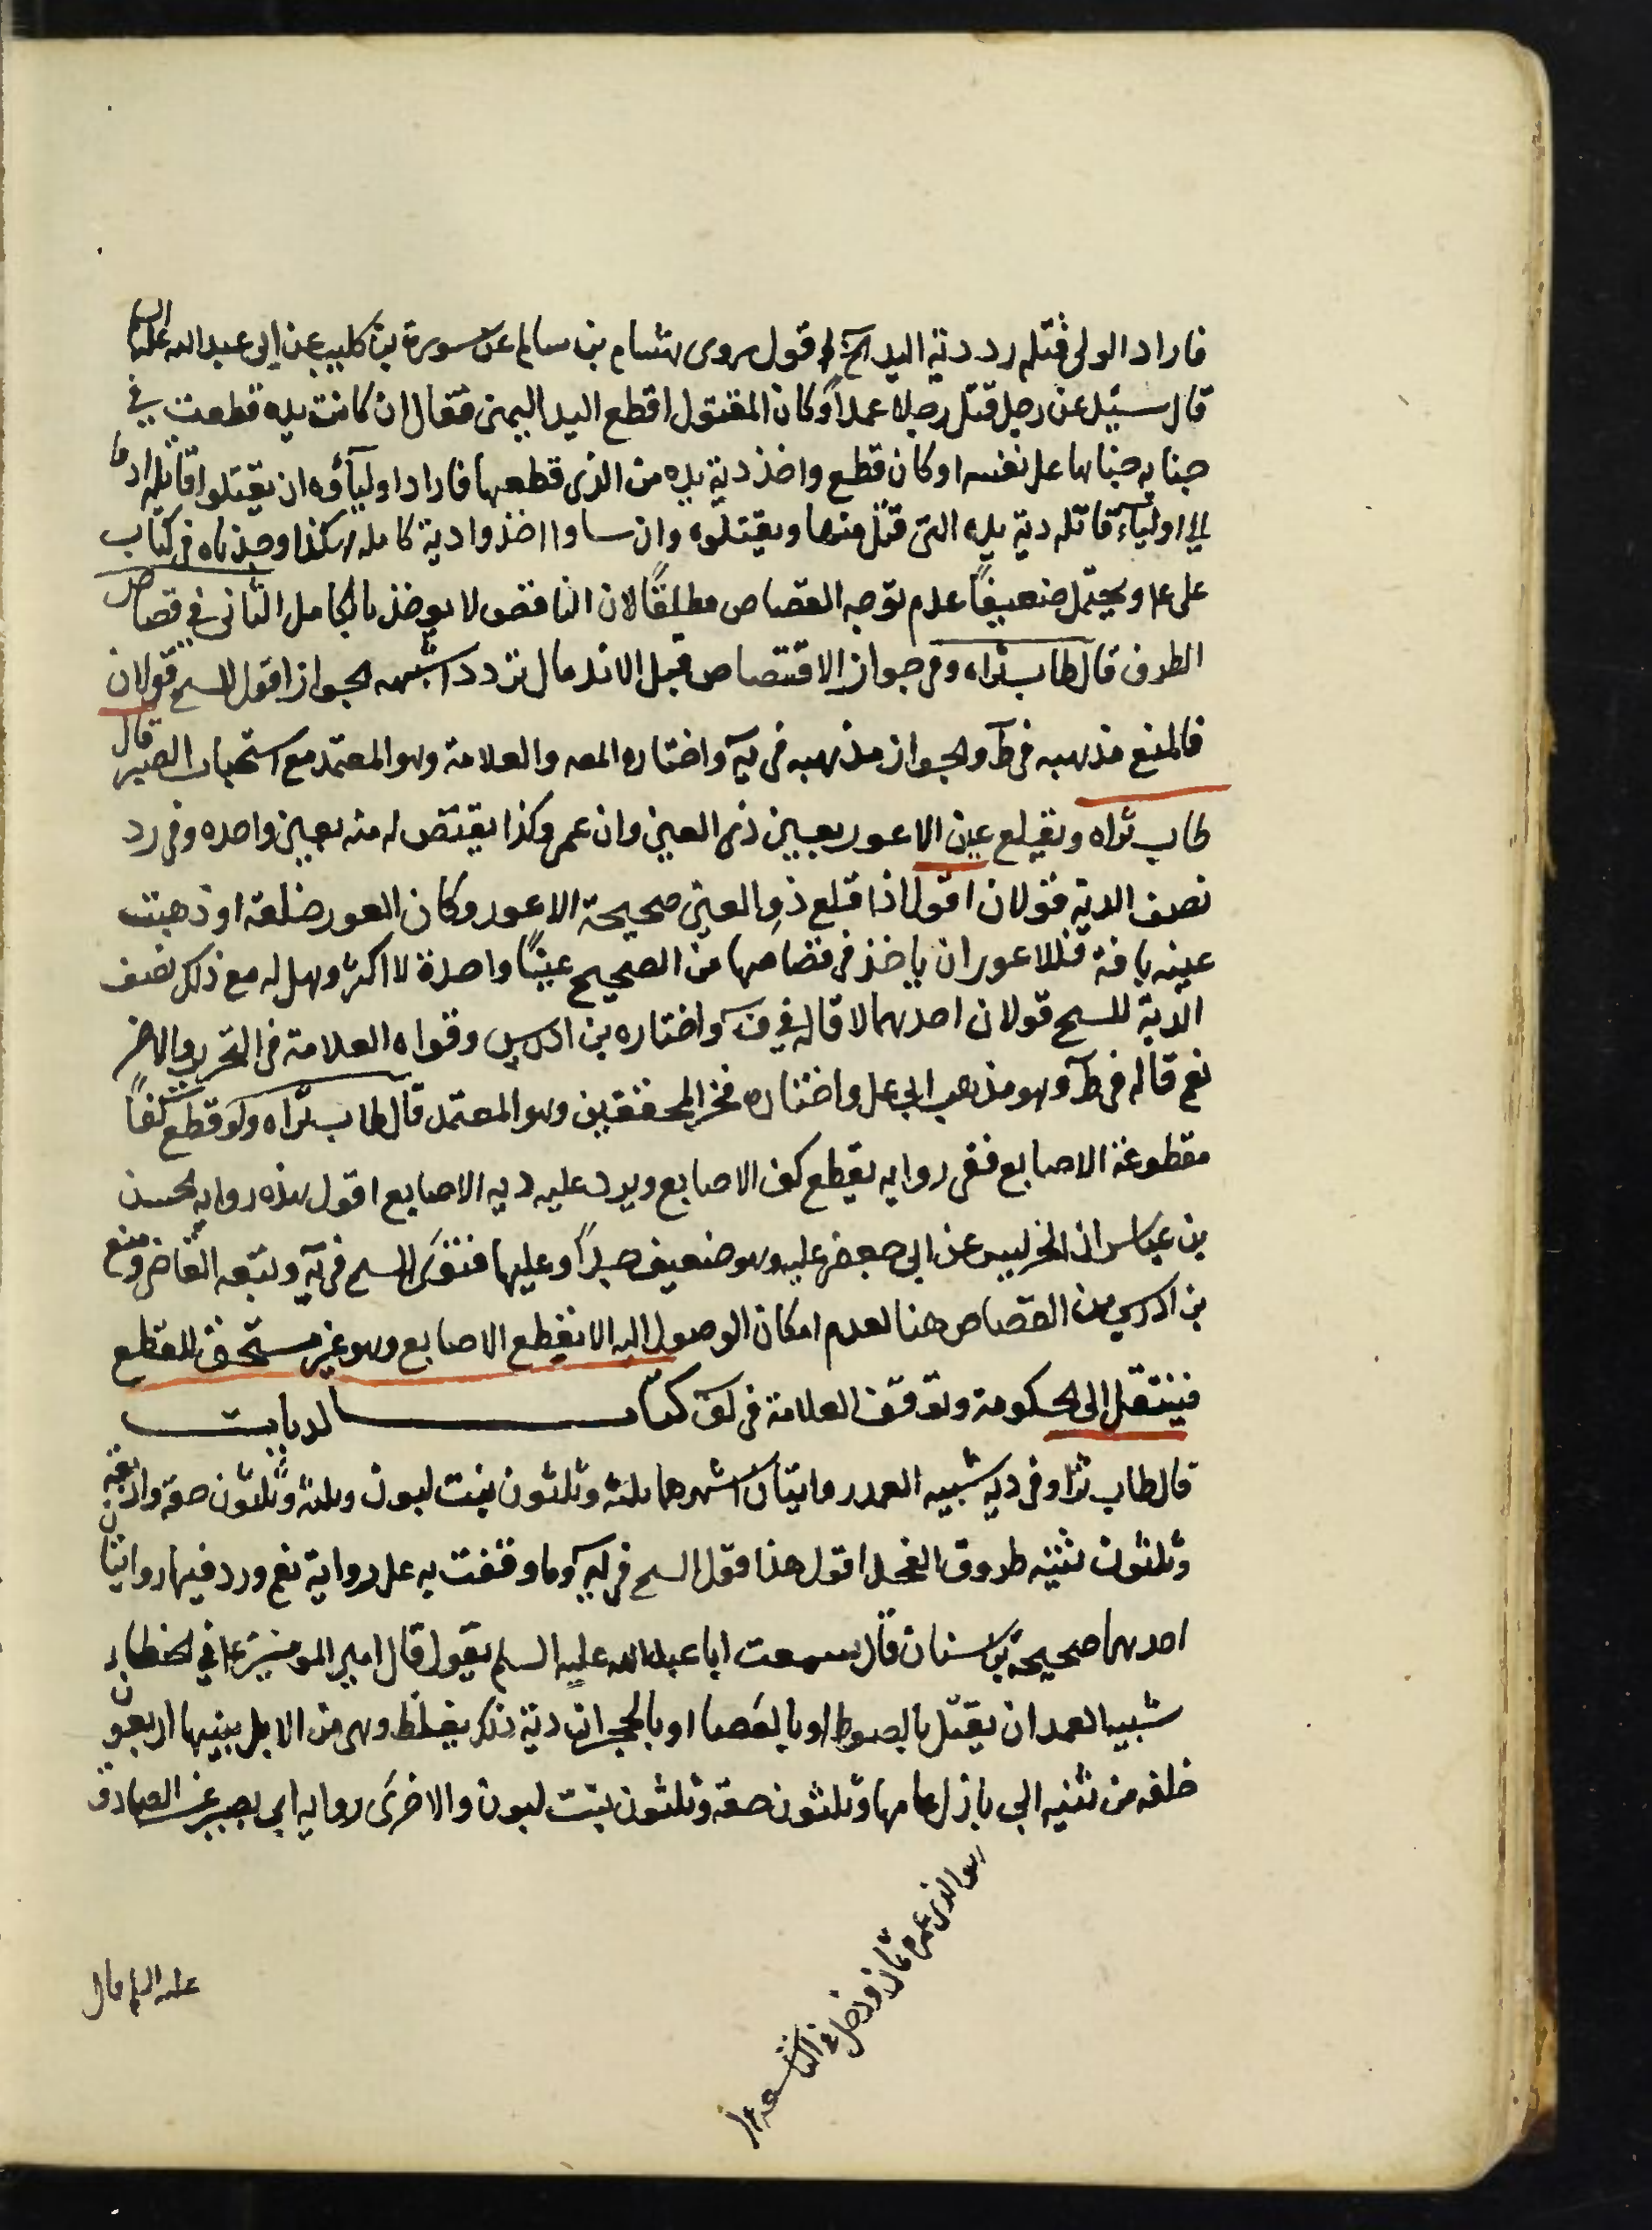 فاراد الولي قتله رد دية اليد الخ اقول روى هشام بن سالم عن سورة بن كليب عن ابي عبد الله عليه السلم
قال سئل عن رجل قتل رجلا عمداً وكان المقتول اقطع اليد اليمنى فقال ان كانت يده قطعت في
جنايه جناها على نفسه او كان قطع واخذ دية يده من الذى قطعها فاراد اولياؤه ان يقتلوا قاتله ادوا
الى اولياء قاتله دية يده التى قتل منها ويقتلوه وان ساوا اخذوا دية كامله هكذا وجدناه في كتاب
على ع ويحتمل ضعيفاً عدم توجه القصاص مطلقاً لان الناقص لا يوخذ بالكامل الثانى في قصاص
الطرف قال طاب ثراه وفى جواز الاقتصاص قبل الاندمال تردد اشبهه الجواز اقول للسح قولان
فالمنع مذهبه فى ط والجواز مذهبه فى يه واختاره المص والعلامة وهو المعتمد مع استحباب الصبر قال
طاب ثراه ويقلع عين الاعور بعين ذى العين وان عمى وكذا يقتص له منه بعين واحده وفى رد
نصف الدية قولان اقول اذا قلع ذو العين صحيحة الاعور وكان العور خلقة او ذهبت
عينه بافة فللاعور ان ياخذ فى قصاصها من الصحيح عيناً واحدة لا اكثر وهل له مع ذلك نصف
الدية للسح قولان احدهما لا قاله في ف واختاره بن ادريس وقواه العلامة فى التحرير والاخر
نعم قاله فى ط وهو مذهب ابي على واختاره فخر المحققين وهو المعتمد قال طاب ثراه ولو قطع كفاً
مقطوعة الاصابع ففى روايه يقطع كف الاصابع ويرد عليه ديه الاصابع اقول هذه روايه الحسن
بن عباس ان الحريش عن ابى جعفر عليه وهو ضعيف جداً وعليها فتوى السح فى يه وتبعه القاضى ومنع
بن ادريس من القصاص هنا لعدم امكان الوصول اليه الا بقطع الاصابع وهو غير مستحق للقطع
فينتقل الى الحكومة وتوقف العلامة فى لف كتاب الديات
قال طاب ثراه وفى ديه شبيه العمد روايتان اشهرهما ثلثة وثلثون بنت لبون وثلثة وثلثون حقة واربعة
وثلثون ثنيه طروق الفحل اقول هذا قول السح فى يه وما وقفت به على رواية نعم ورد فيها روايتان
احدهما صحيحة بن سنان قال سمعت ابا عبد الله عليه السلم يقول قال امير المومنين ع في الخطاء
شبيه العمد ان يقتل بالصوط او بالعصا او بالحجر ان دية ذلك يغلظ وهى من الابل بينها اربعون
خلفه من ثنيه الى بازل عامها وثلثون حقة وثلثون بنت لبون والاخرى روايه ابى بصير عن الصادق
عليه السلم قال